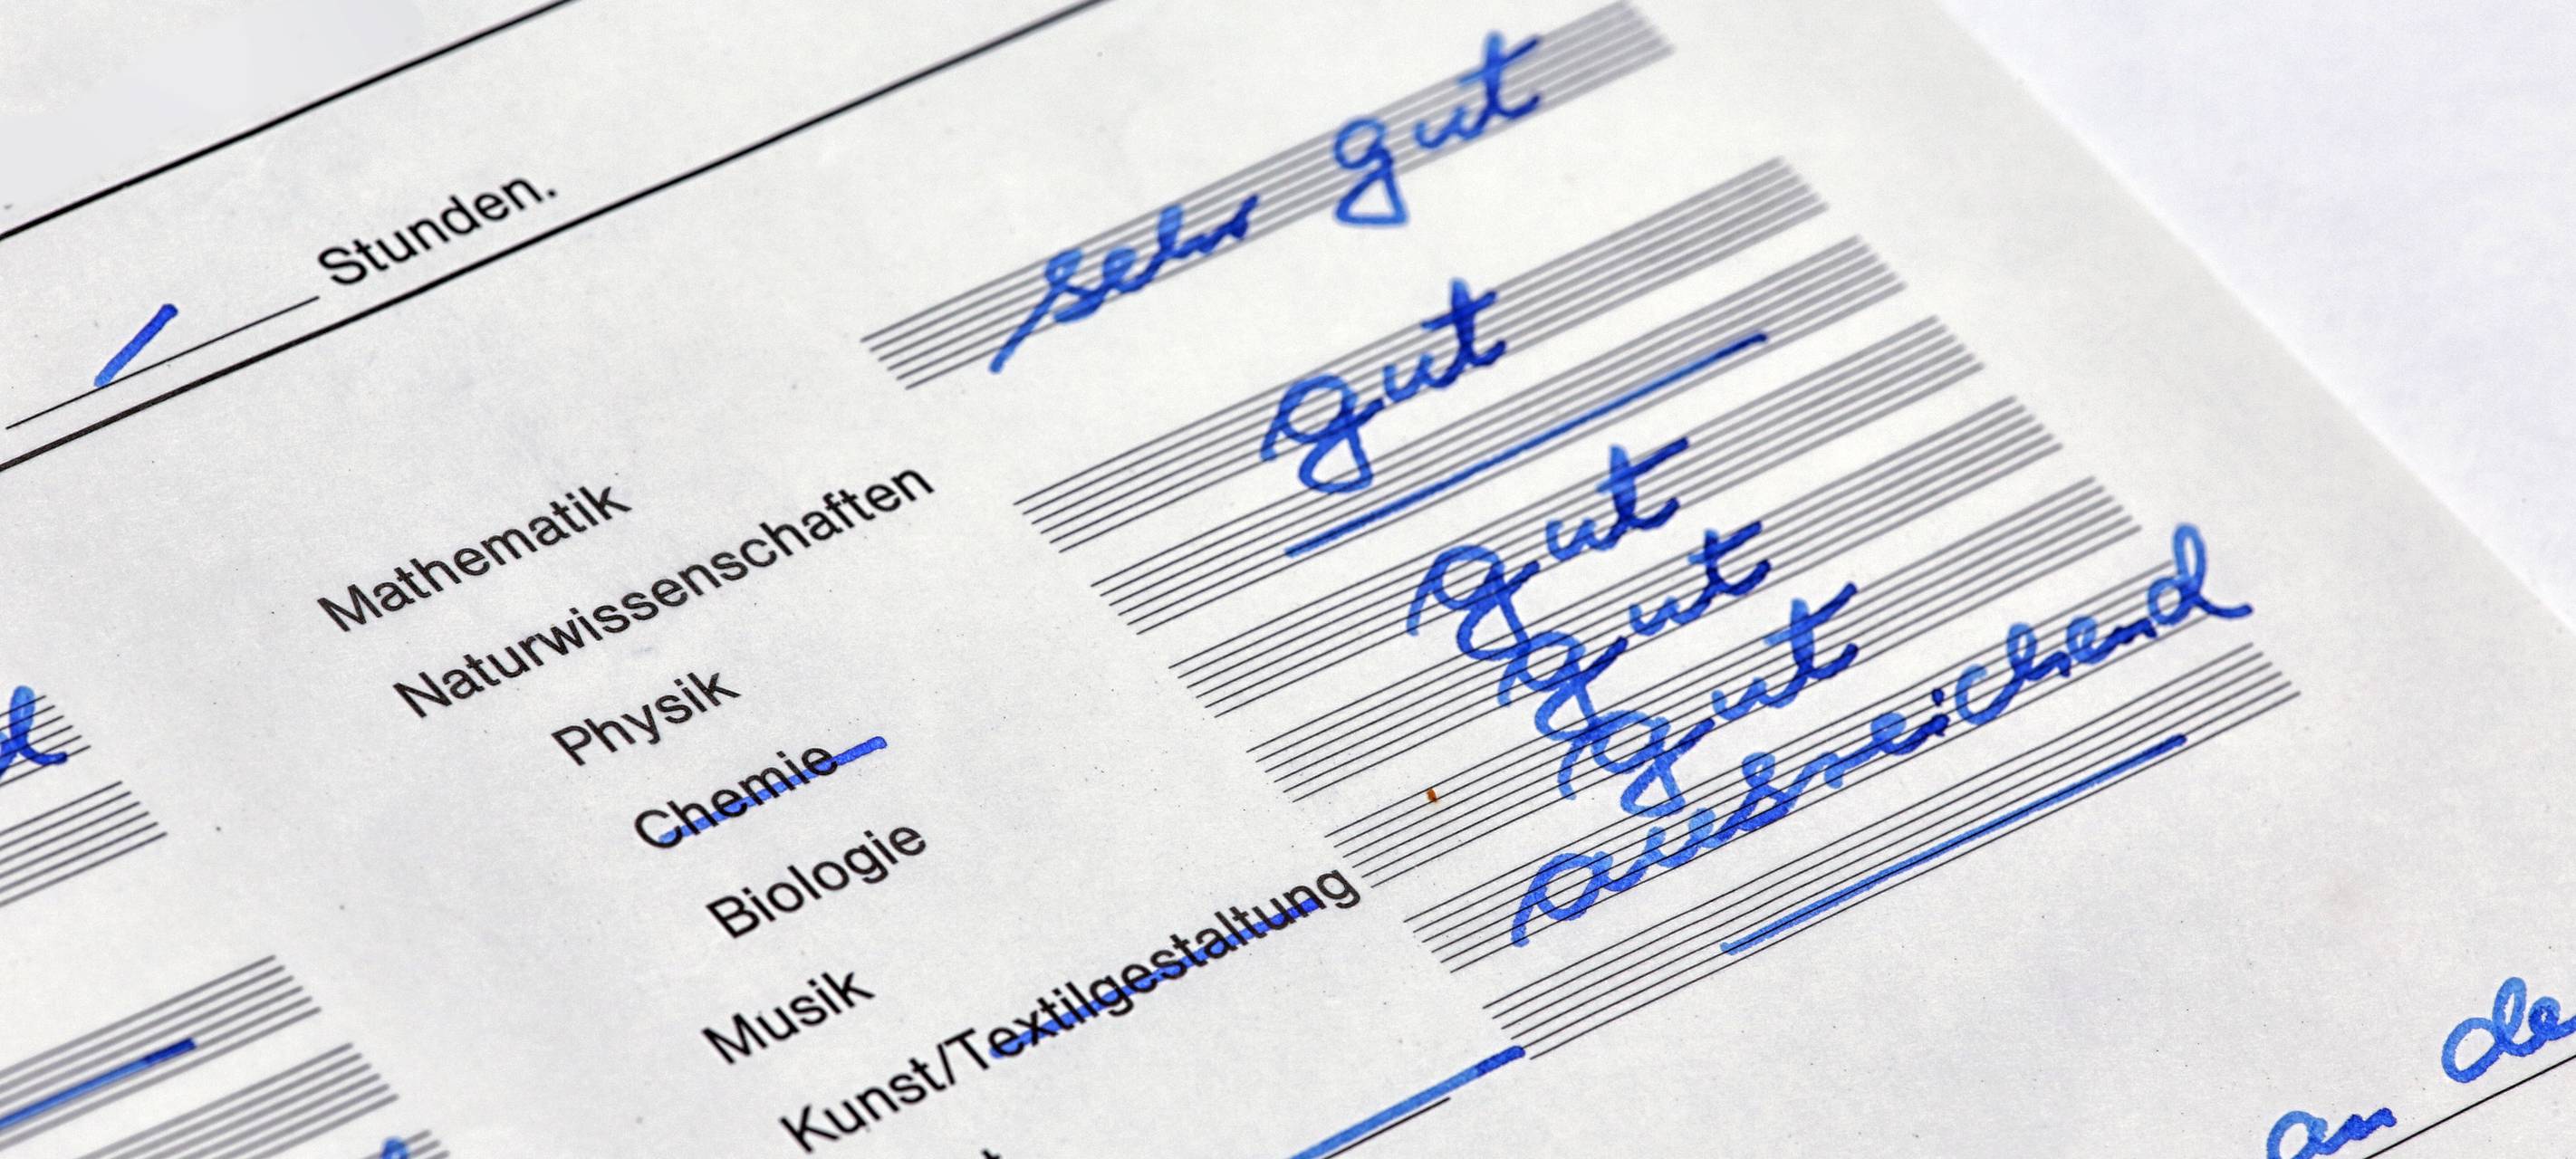 / Stunden.
Mathematik sehr gut
Naturwissenschaften
Physik gut
Chemie
Biologie gut
Musik gut
Kunst/Textilgestaltung gut
ausreichend
an